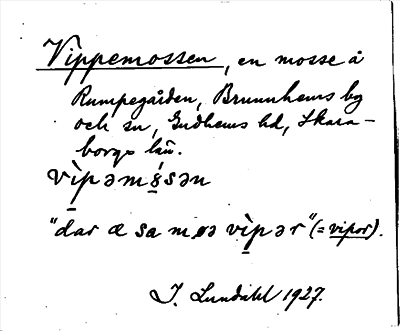 Vippemossen, en mosse å
Rumpegården, Brunnhems by
och sn, Gudhems hd, Skara-
borgs län.
vìpəmósən
"dar æ sa møə vìpər" (= vipor).
I. Lundahl 1927.